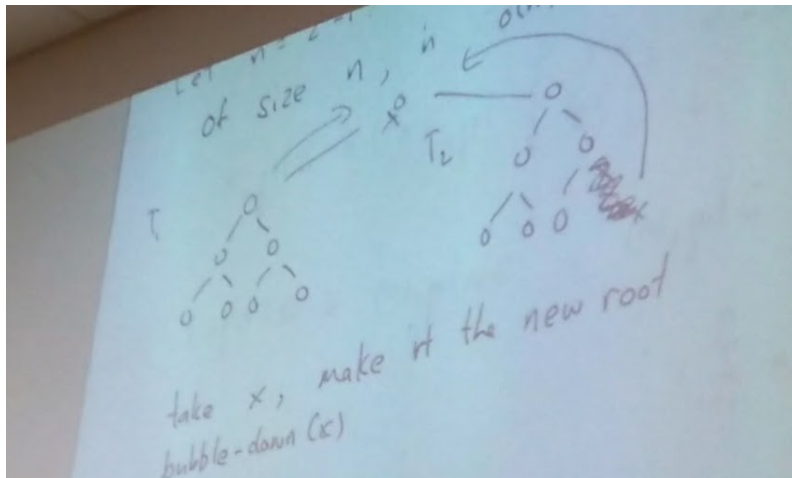 Let n = 2
of size n, in
x
T₂
T
take x, make it the new root
bubble-down (x)